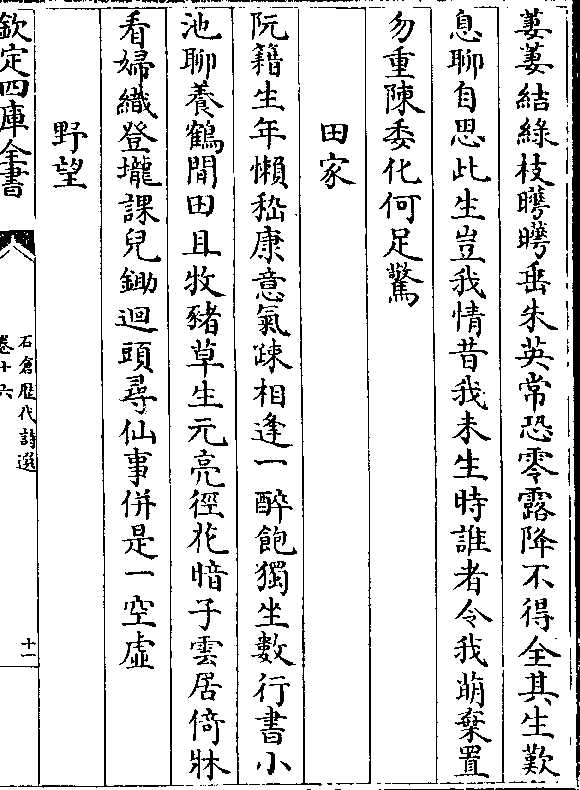 萋萋結綠枝曄曄垂朱英常恐零露降不得全其生歎
息聊自思此生豈我情昔我未生時誰者令我萌棄置
勿重陳委化何足驚
田家
阮籍生年懶嵇康意氣疎相逢一醉飽獨坐數行書小
池聊養鶴閒田且牧豬草生元亮徑花暗子雲居倚牀
看婦織登壠課兒鋤迴頭尋仙事併是一空虛
野望
欽定四庫全書
石倉歷代詩選
卷十六
十一